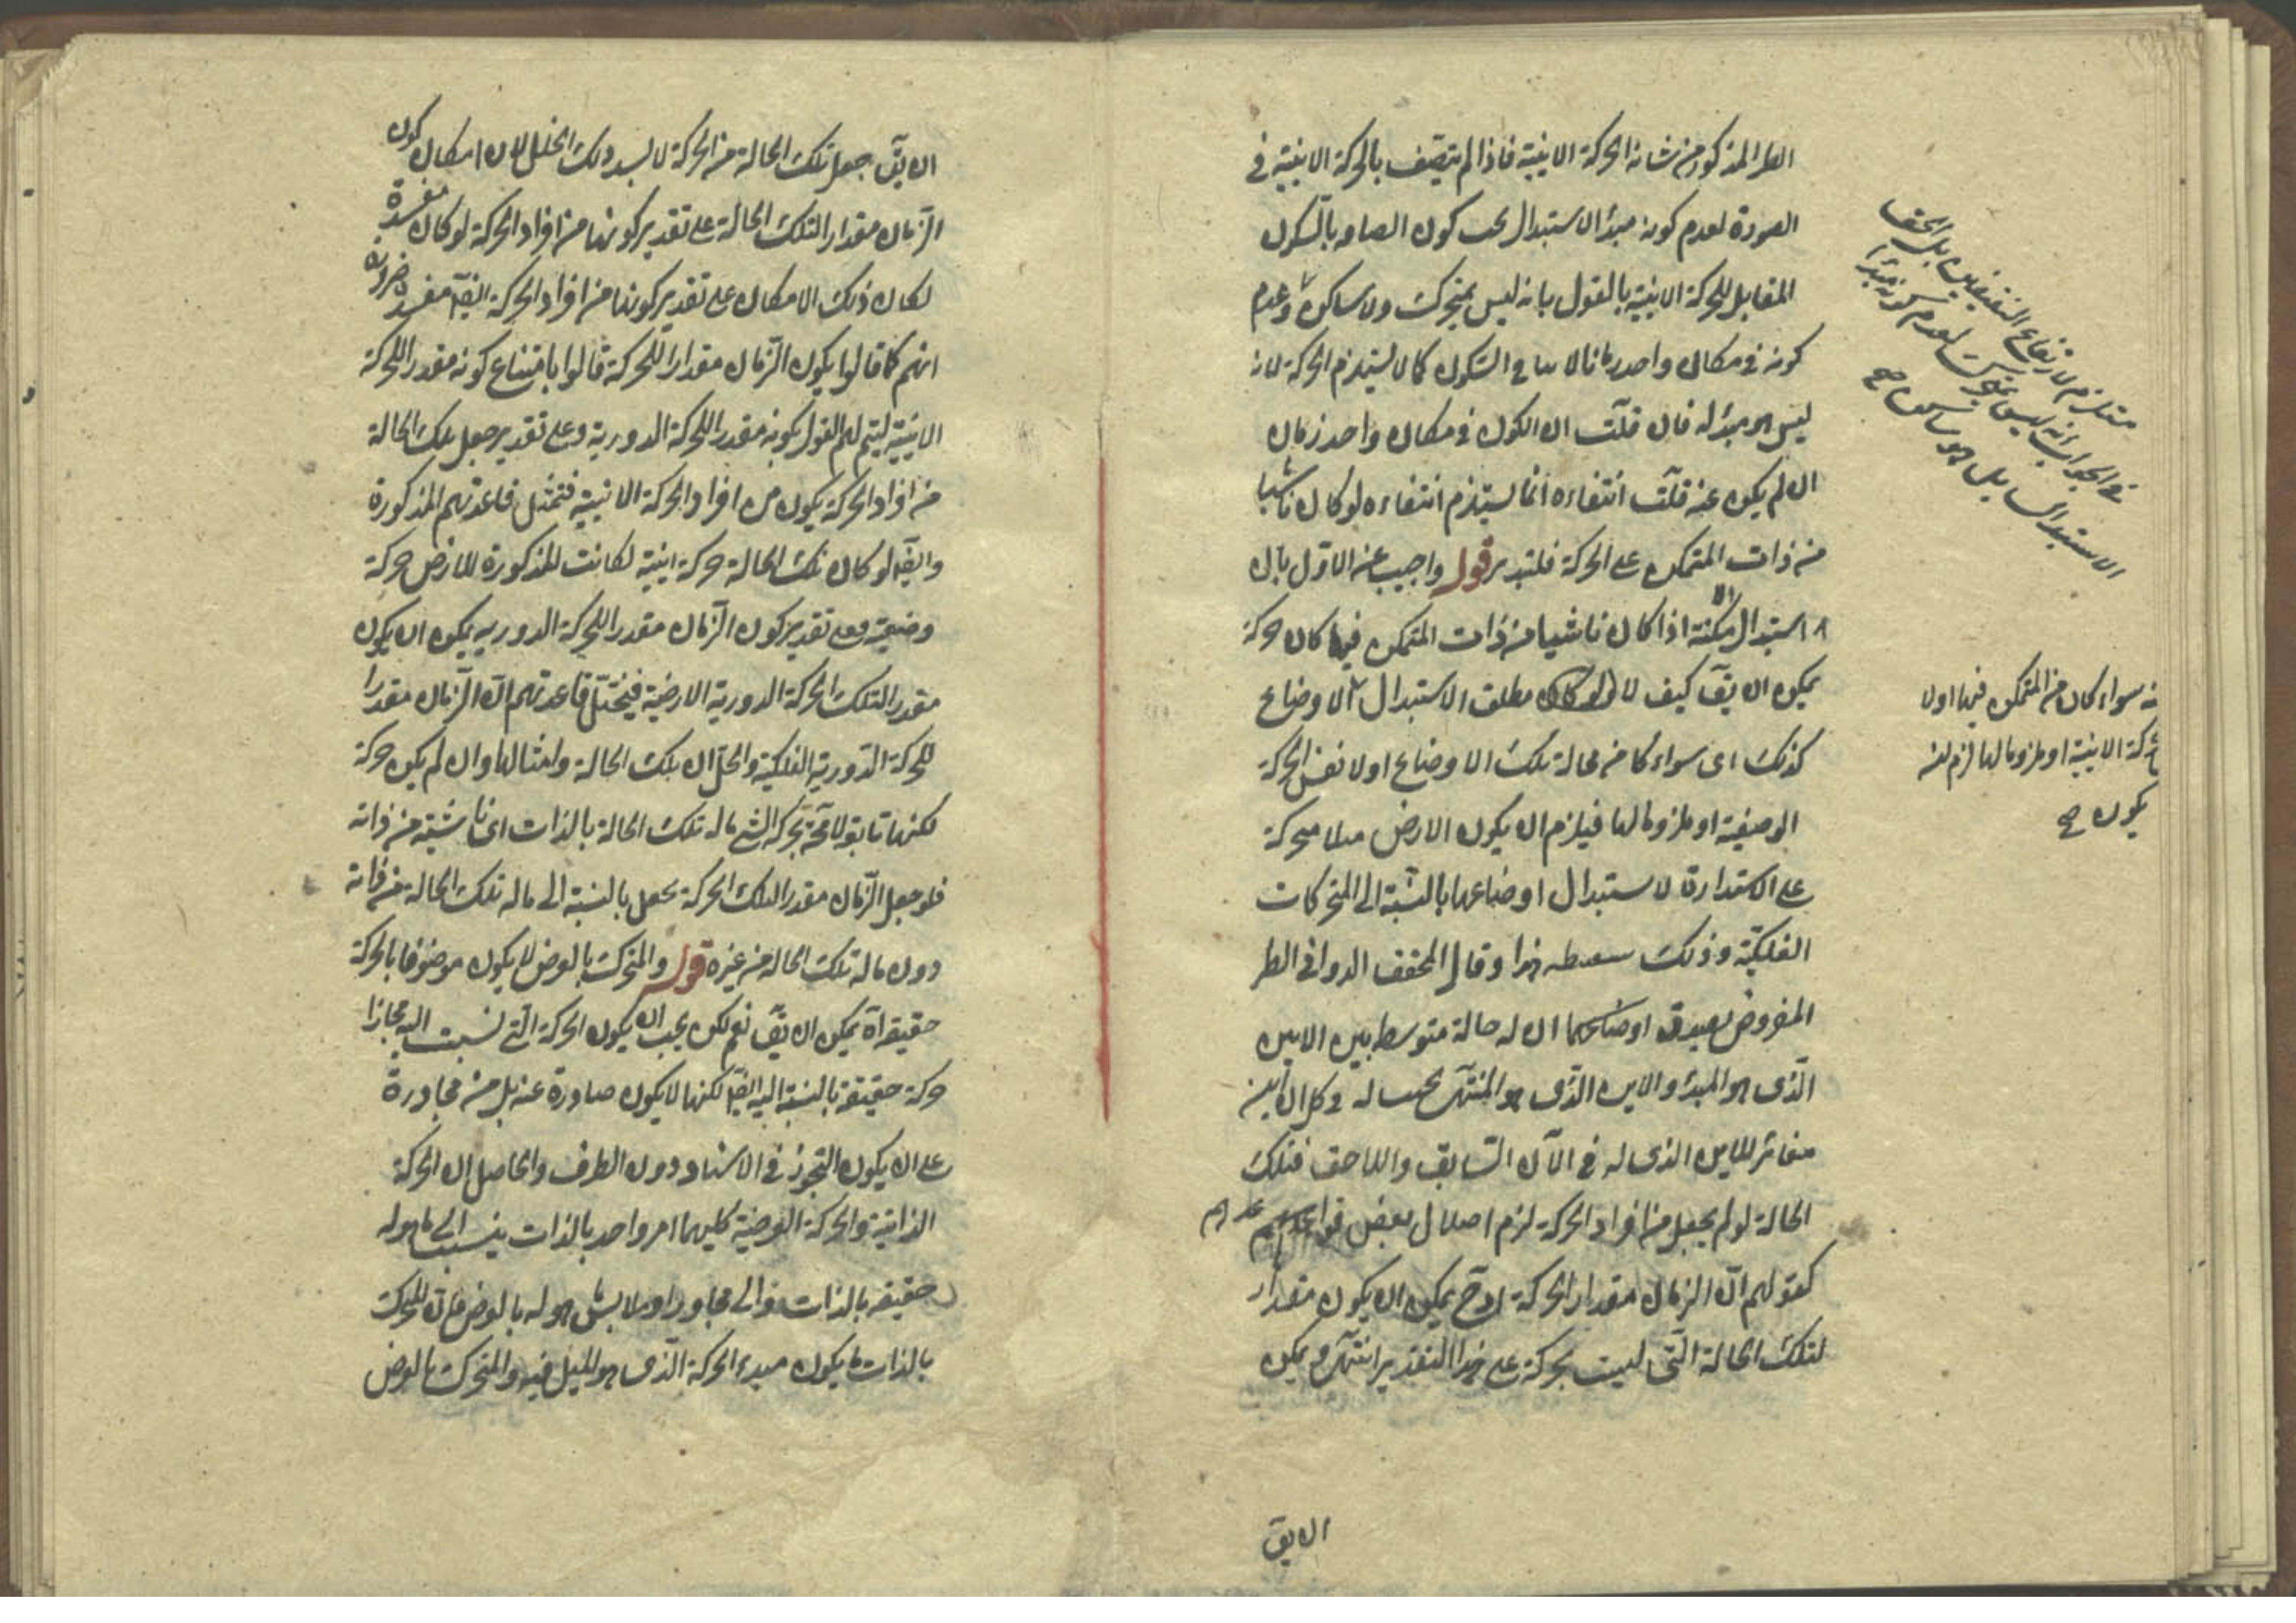 الطير المذكور من شانه الحركة الاينية فاذا لم يتصف بالحركة الاينية في
الصورة لعدم كونه مبدأ الاستبدال يجب كون اتصافه بالسكون
المقابل للحركة الاينية بالقول بانه ليس بمتحرك ولا ساكن وعدم
كونه في مكان واحد زمانا لا ينافي السكون كما لا يستلزم الحركة لانه
ليس هو مبدؤه فان قلت ان الكون في مكان واحد زمان
ان لم يكن عنه قلت انتفاءه انما يستلزم انتفاءه لو كان ناشيا
من ذات المتمكن على الحركة فليتدبر قوله واجيب عن الاول بان
استبدال الامكنة اذا كان ناشيا من ذات المتمكن فيها كان حركة
يمكن ان يق كيف لا ولو كان مطلق الاستبدال الاوضاع
كذلك اى سواء كان من محالة تلك الاوضاع اولا نفس الحركة
الوضعية او ملزوما لها فيلزم ان يكون الارض مثلا متحركة
على الاستدارة لاستبدال اوضاعها بالنسبة الى المتحركات
الفلكية وذلك سفسطه هذا وقال المحقق الدوانى الطير
المفروض يصدق ان له حالة متوسط بين الاين
الذى هو المبدء والاين الذى هو المنتهى بحسبه له في كل ان اين
مغائر للاين الذى له في الآن السابق واللاحق فتلك
الحالة لو لم يجعل من افراد الحركة لزم اختلال بعض قواعدهم
كقولهم ان الزمان مقدار الحركة اذ ح يمكن ان يكون مقدار
لتلك الحالة التى ليست بحركة على هذا التقدير انتهى ويمكن
ان يق
مستلزم لارتفاع النقيضين بل الحق
في الجواب انه ليس بمتحرك لعدم كونه مبدأ
الاستبدال بل هو ساكن صح
نه سواء كان من المتمكن فيها اولا
حركة الاينية او ملزوما لها لزم لنه
يكون صح
ان يق جعل تلك الحالة من الحركة لا يسد ذلك الخلل لان امكان كون
الزمان مقدارا لتلك الحالة على تقدير كونها من افراد الحركة لو كان مفسدة
لكان ذلك الامكان على تقدير كونها من افراد الحركة ايضا مفسدة ضرورة
انهم كما قالوا بكون الزمان مقدارا للحركة قالوا بامتناع كونه مقدرا للحركة
الاينية ليتم لهم القول بكونه مقدرا للحركة الدورية وعلى تقدير جعل تلك الحالة
من افراد الحركة يكون من افراد الحركة الاينية فتختل قاعدتهم المذكورة
وايضا لو كان تلك الحالة حركة اينية لكانت المذكورة للارض حركة
وضعية وعلى تقدير كون الزمان مقدرا للحركة الدوريه يمكن ان يكون
مقدرا لتلك الحركة الدورية الارضية فيختل قاعدتهم ان الزمان مقدرا
للحركة الدورية الفلكية والحل ان تلك الحالة وامثالها وان لم يكن حركة
لكنها تابع لاحقة بحركة الشئ ماله تلك الحالة بالذات اى ناشية من ذاته
فلو جعل الزمان مقدرا لتلك الحركة يجعل بالنسبة الى ماله تلك الحالة من ذاته
دون ماله تلك الحاله من غيره قوله والمتحرك بالعرض لا يكون موصوفا بالحركة
حقيقة اه يمكن ان يق نعم لكن يجب ان يكون الحركة التى نسبت اليه مجازا
حركة حقيقة بالنسبة اليه ايضا لكنها لا يكون صادرة عنه بل من مجاورة
على ان يكون التجوز في الاسناد دون الطرف والحاصل ان الحركة
الذاتية والحركة العرضية كليهما امر واحد بالذات ينسب الى ما هو له
حقيقه بالذات والى مجاور او ملابس هو له بالعرض فان المتحرك
بالذات ما يكون مبدء الحركة الذى هو الميل فيه والمتحرك بالعرض